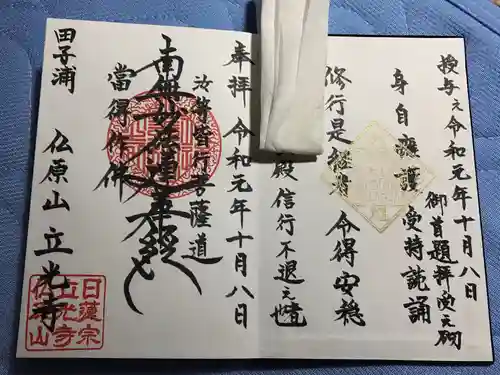 授与之 令和元年十月八日
御首題拝受之砌
身自擁護 受持読誦
修行是経者 令得安穏
殿 信行不退之也
奉拝 令和元年十月八日
汝等皆行菩薩道
南無妙法蓮華経
當得作佛
田子浦 仏原山 立光寺
日蓮宗
立光寺
仏原山